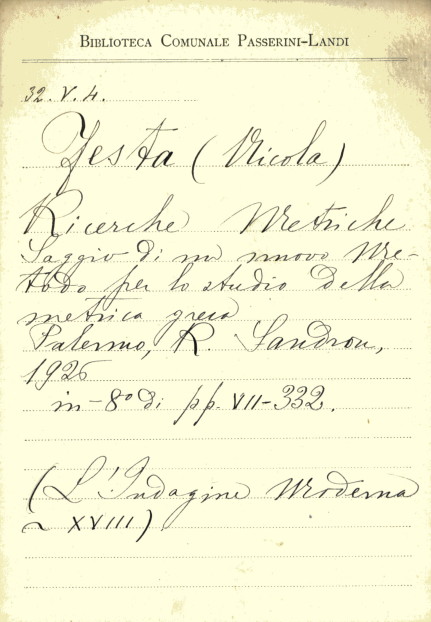 BIBLIOTECA COMUNALE PASSERINI-LANDI
32.V.4.
Festa (Nicola)
Ricerche Metriche
Saggio di un nuovo Me-
todo per lo studio della
metrica greca
Palermo, R. Sandron,
1926
in-8° di pp. VII-332.
(L'Indagine Moderna
XVIII)